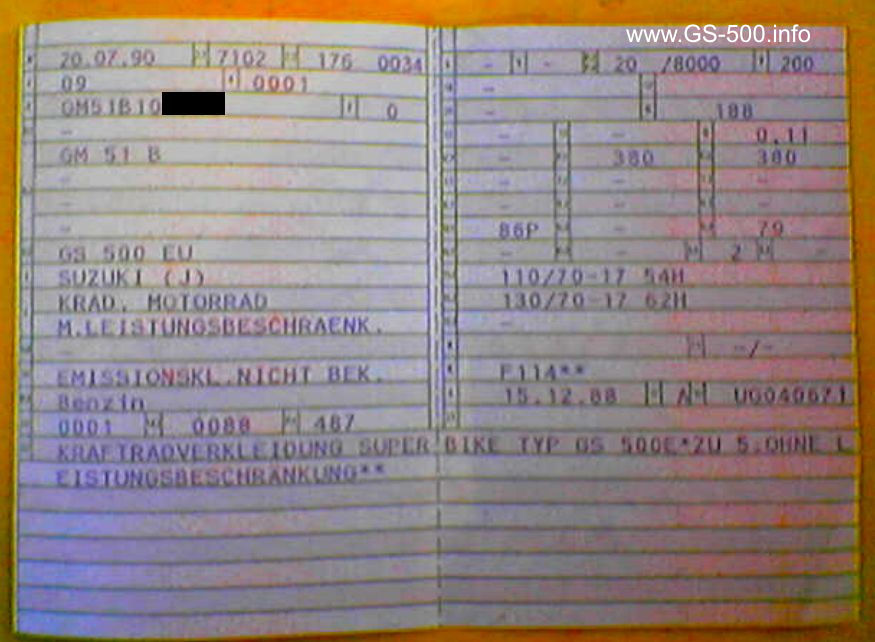 www.GS-500.info
20.07.90 7102 176 0034
09 0001
GM51B10 0
-
GM 51 B
-
-
-
GS 500 EU
SUZUKI (J)
KRAD, MOTORRAD
M.LEISTUNGSBESCHRAENK.
-
EMISSIONSKL.NICHT BEK.
Benzin
0001 0088 487
- - 20 /8000 200
-
- 188
- - 0,11
- 380 380
- - -
- - -
86P - 79
- - 2 -
110/70-17 54H
130/70-17 62H
-
-/-
F114**
15.12.88 A UG040671
KRAFTRADVERKLEIDUNG SUPER BIKE TYP GS 500E*ZU 5:OHNE L
EISTUNGSBESCHRÄNKUNG**